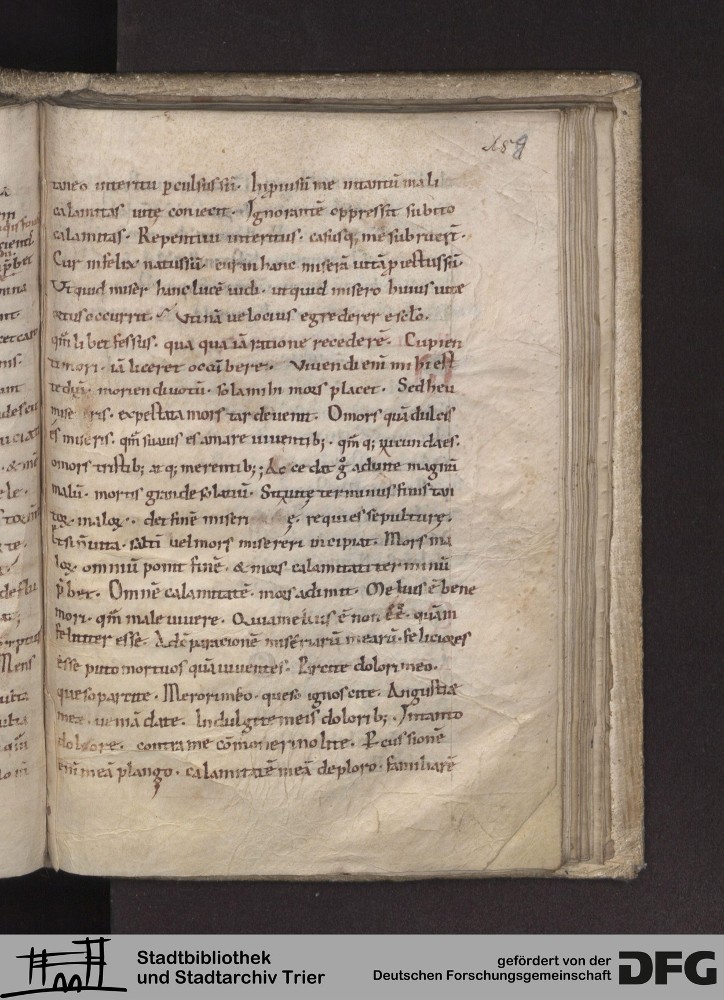 159
taneo interitu ꝑculsus sū. hiprimsū me intantū mali
calamitas uitę coniecit. Ignorantē oppressit subito
calamitas. Repentinus interitus. casusq; me subruer̄t.
Cur infelix natus sū. cur in hanc miserā uitā ꝓiectus sū.
Vt quid miser hanc lucē uidi. ut quid misero huius uitę
ortus occurrit. Vtinā uelocius egrederer e sclo.
qm̄ libet fessus. qua qua iā ratione recederē. Cupien
ti mori. iā liceret occūbere. Viuendi enī mihi est
tediū. moriendi uotū. sola mihi mors placet. Sed heu
mise ris. expectata mors tarde uenit. O mors quā dulcis
es miseris. qm̄ suauis es amare uiuentib;. qm̄ q; iucunda es.
o mors tristib; atq; merentib;; Accedat g̊ ad uitę magnū
malū. mortis grande solatiū. Sit uitę terminus finis tan
toꝝ maloꝝ. det finē miseri ę. requies sepulturę.
Et si n̄ uita. saltī uel mors misereri incipiat. Mors ma
loꝝ omniū ponit finē. & mors calamitati terminū
p̄bet. Omnē calamitatē. mors adimit. Melius ē bene
mori. qm̄ male uiuere. Quia melius ē non ēē. quam
feliciter esse. Ad cōparacionē miseriarū mearū. feliciores
esse puto mortuos quā uiuentes. Parcite dolori meo.
queso parcite. Merori meo. queso ignoscite. Angustiæ
meæ. ueniā date. Indulgite meis dolorib;. In tanto
dolore. contra me cōmoueri nolite. Percussionē
enī meā plango. calamitatē meā deploro. familiarē
Stadtbibliothek
und Stadtarchiv Trier
gefördert von der
Deutschen Forschungsgemeinschaft
DFG